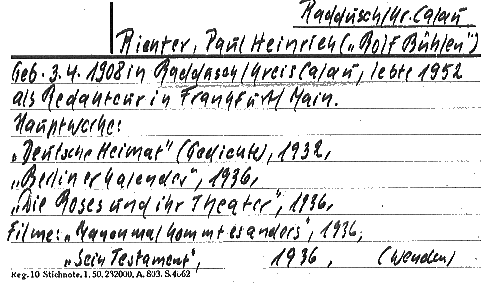 Raddusch/Kr. Calau
Richter, Paul Heinrich („Rolf Bühlen")
Geb. 3.4.1908 in Raddusch/Kreis Calau, lebte 1952
als Redakteur in Frankfurt/Main.
Hauptwerke:
„Deutsche Heimat" (Gedichte), 1932,
„Berliner Kalender", 1936,
„Die Roses und ihr Theater", 1936,
Filme: „Manchmal kommt es anders", 1936,
„Sein Testament", 1936, (wenden)
Reg. 10 Stichnote. 1. 50. 232000. A. 803. S. 4662